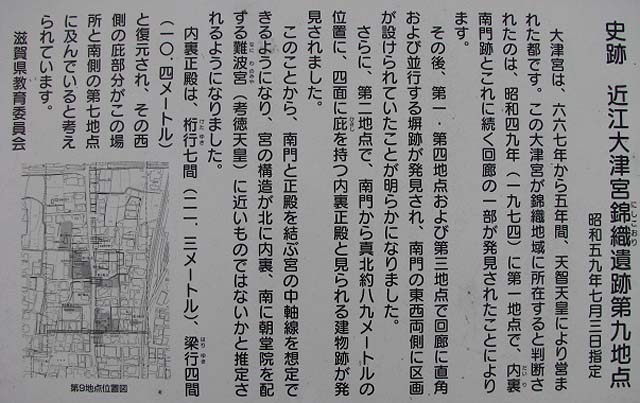 史跡 近江大津宮錦織遺跡第九地点
にしこおり
昭和五九年七月三日指定
大津宮は、六六七年から五年間、天智天皇により営ま
れた都です。この大津宮が錦織地域に所在すると判断さ
れたのは、昭和四九年（一九七四）に第一地点で、内裏
だいり
南門跡とこれに続く回廊の一部が発見されたことにより
ます。
その後、第一・第四地点および第三地点で回廊に直角
および並行する塀跡が発見され、南門の東西両側に区画
が設けられていたことが明らかになりました。
さらに、第二地点で、南門から真北約八九メートルの
位置に、四面に庇を持つ内裏正殿と見られる建物跡が発
ひさし
見されました。
このことから、南門と正殿を結ぶ宮の中軸線を想定で
きるようになり、宮の構造が北に内裏、南に朝堂院を配
する難波宮（孝徳天皇）に近いものではないかと推定さ
なにわのみや
れるようになりました。
内裏正殿は、桁行七間（二一．三メートル）、梁行四間
けたゆき
はりゆき
（一〇．四メートル）
と復元され、その西
側の庇部分がこの場
所と南側の第七地点
に及んでいると考え
られています。
滋賀県教育委員会
第9地点位置図